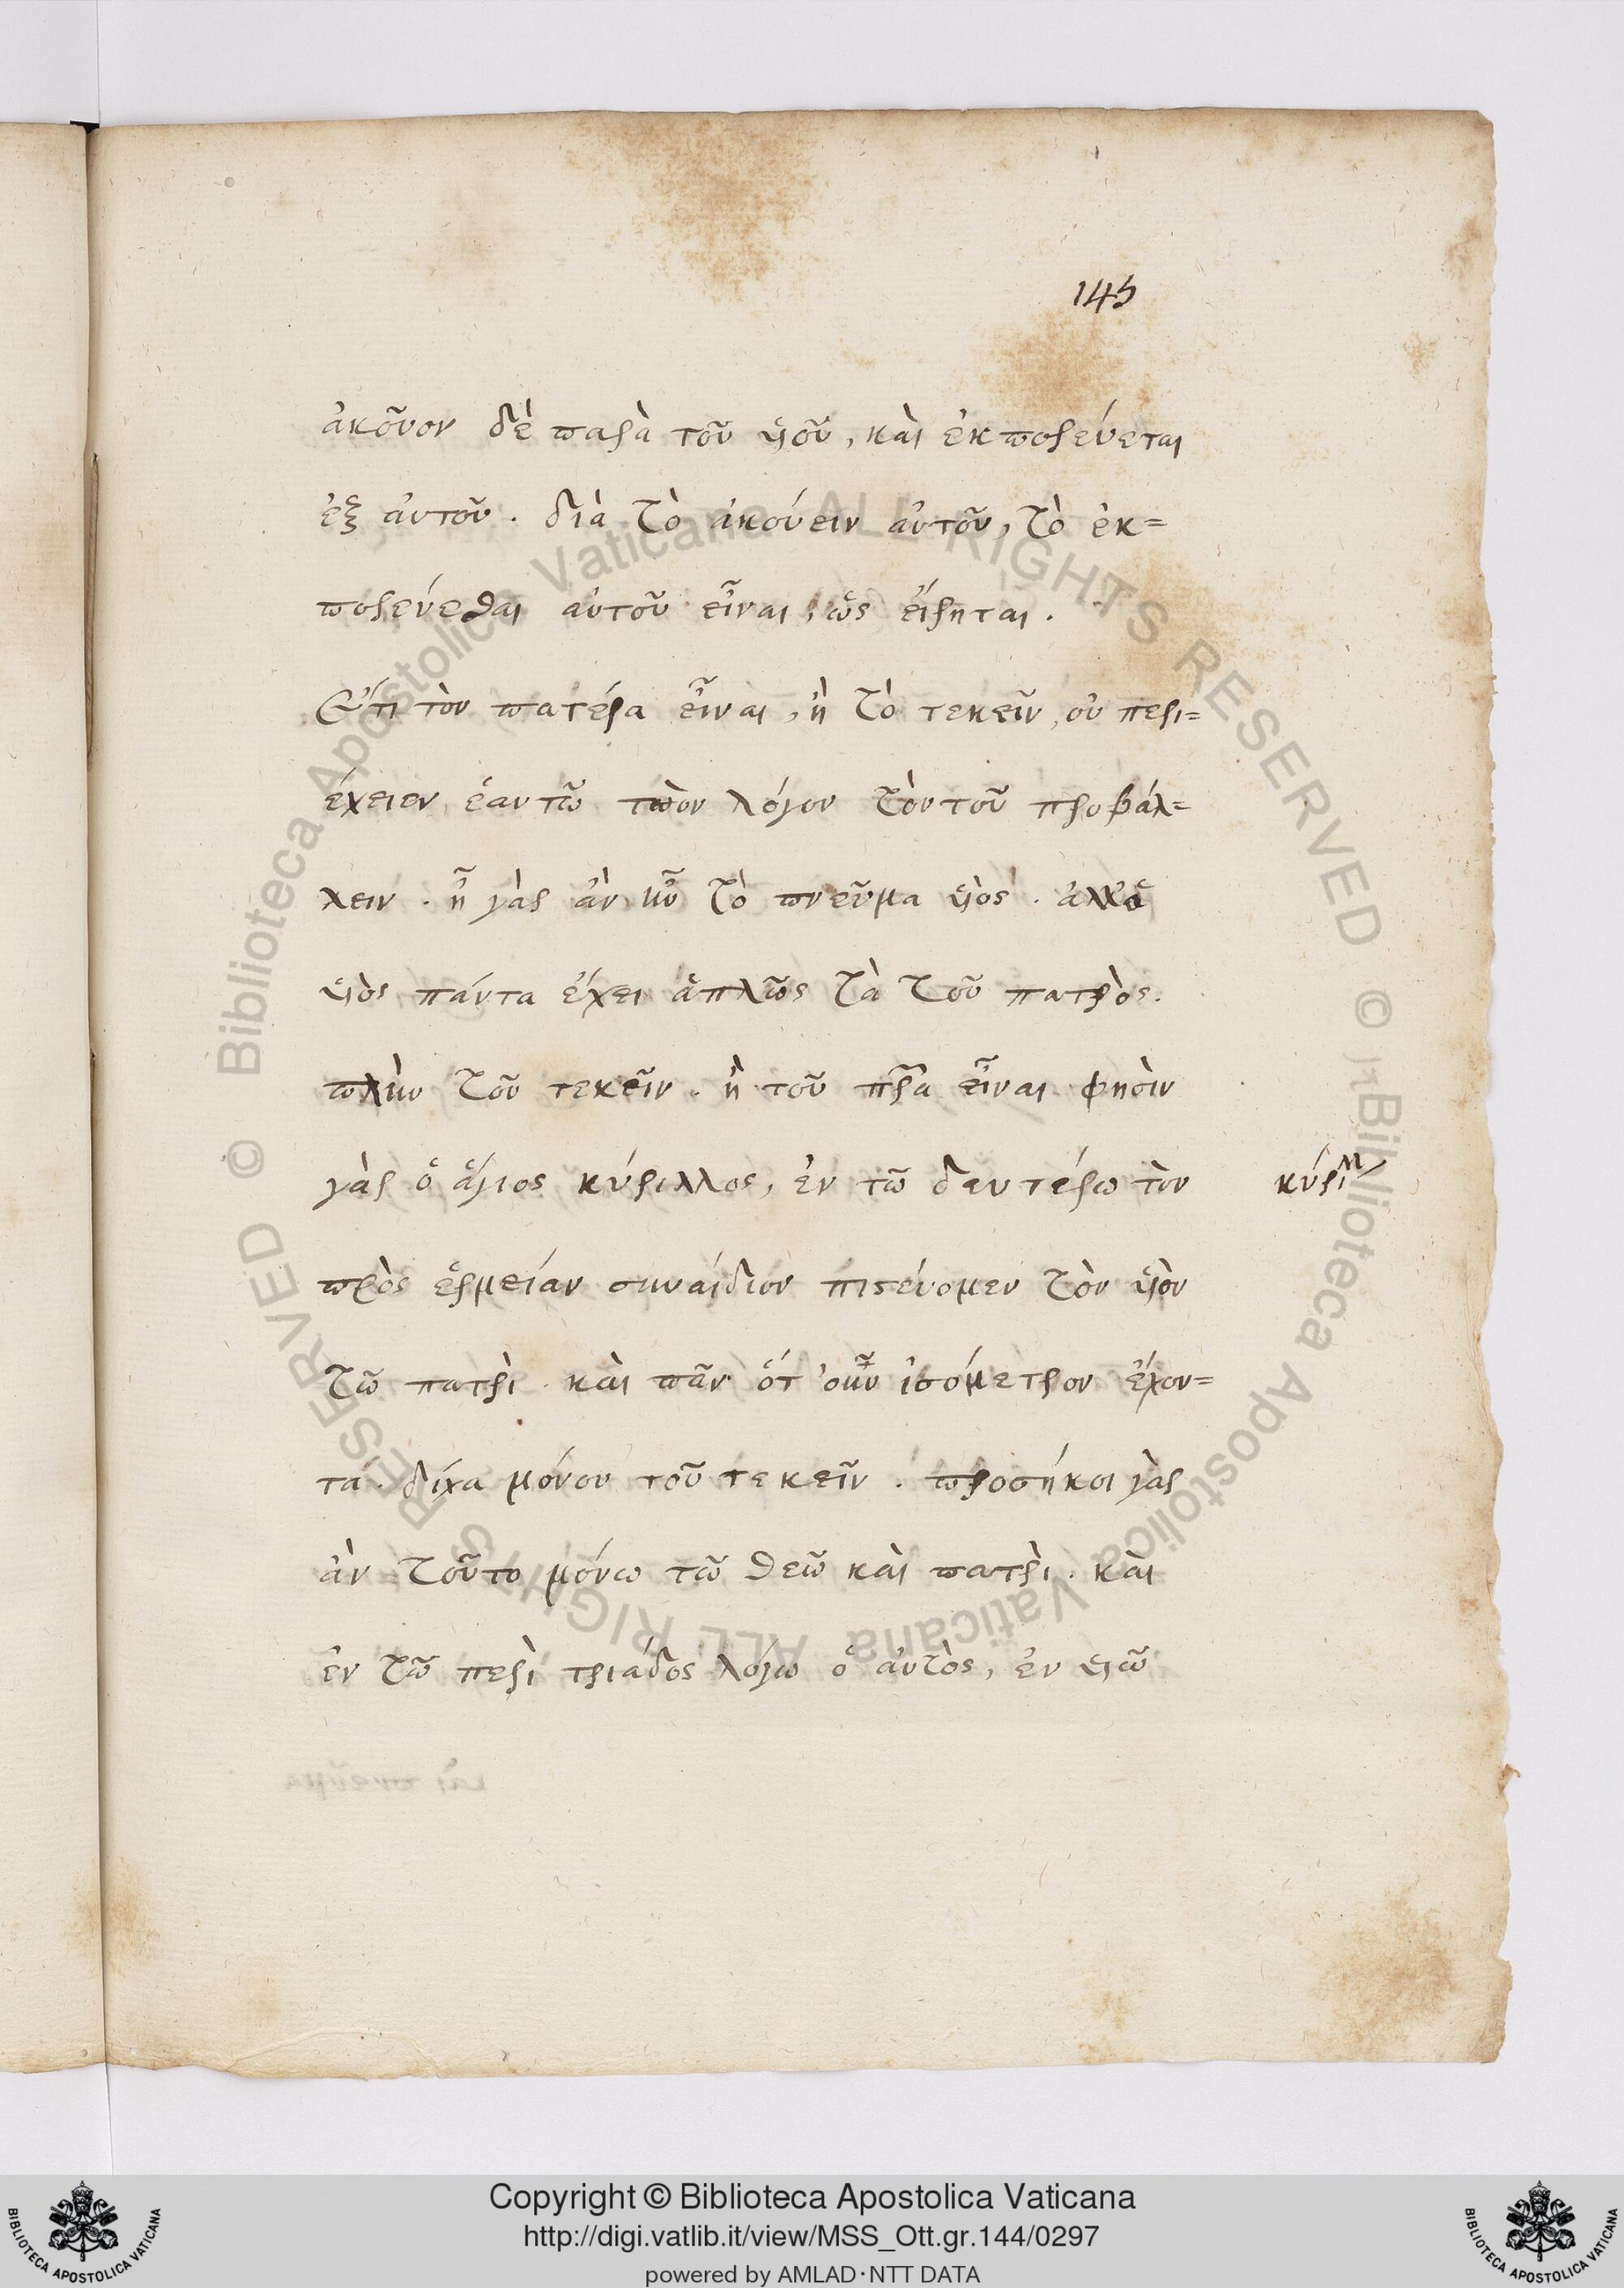 145
ἀκοῦον δὲ παρὰ τοῦ ὑιοῦ, καὶ ἐκπορεύεται
ἐξ ἀυτοῦ. διὰ τὸ ἀκούειν αὐτοῦ, τὸ ἐκ=
πορεύεσθαι αὐτοῦ εἶναι, ὡς εἴρηται.
Ἔτι τὸν πατέρα εἶναι, ἢ τὸ τεκεῖν, οὐ περι=
έχειεν ἑαυτῶ τὸν λόγον τὸν τοῦ προβάλ=
λειν. ἦ γὰρ ἂν ἦν τὸ πνεῦμα ὑιός. ἀλλ' ὁ
ὑιὸς πάντα ἔχει ἁπλῶς τὰ τοῦ πατρὸς.
πλὴν τοῦ τεκεῖν. ἢ τοῦ πρ̃α εἶναι φησὶν
γὰρ ὁ ἅγιος κύριλλος, ἐν τῶ δευτέρω τὸν
κύριλλ/
πρὸς ἑρμείαν συναίδιον πιστεύομεν τὸν ὑιὸν
τῶ πατρὶ. καὶ πᾶν ὅτ' οὖν ἰσόμετρον ἔχον=
τα. δίχα μόνου τοῦ τεκεῖν. προσήκοι γὰρ
ἂν τοῦτο μόνω τῶ θεῶ καὶ πατρὶ. καὶ
ἐν τῶ περὶ τριάδος λόγω ὁ ἀυτὸς, ἐν ὑιῶ
Copyright © Biblioteca Apostolica Vaticana
http://digi.vatlib.it/view/MSS_Ott.gr.144/0297
powered by AMLAD·NTT DATA
BIBLIOTECA APOSTOLICA VATICANA
BIBLIOTECA APOSTOLICA VATICANA
© Biblioteca Apostolica Vaticana ALL RIGHTS RESERVED
© Biblioteca Apostolica Vaticana ALL RIGHTS RESERVED